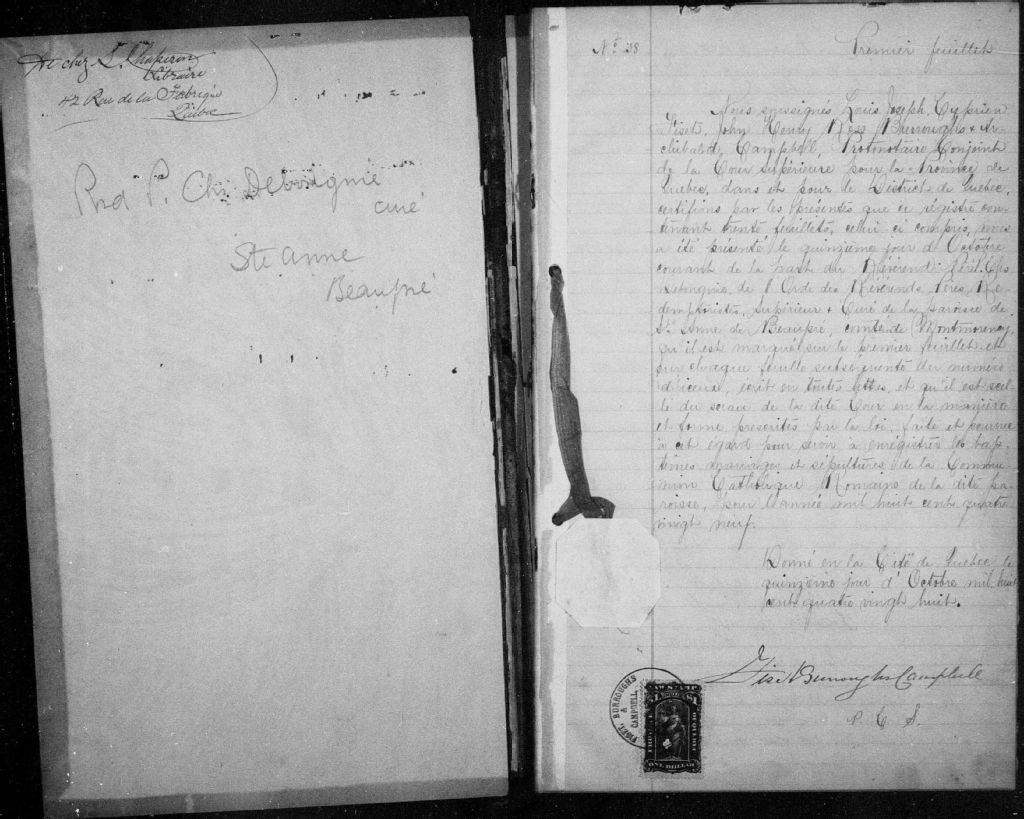 chez L. Chaperon
Libraire
42 Rue de la Fabrique
Québec
Rvd P. Chs Debongnie
curé
Ste Anne
Beaupré
No. 38
Premier feuillet
Nous soussignés Louis Joseph Cyprien
Fiset, John Henry Ross Burroughs & Ar-
chibald Campbell, Protonotaire Conjoint
de la Cour Supérieure pour la Province de
Quebec, dans et pour le District de Quebec,
certifions par les présentes que ce régistre con-
tenant trente feuillets, celui ci compris, nous
a été présenté le quinzième jour d'Octobre
courant de la part du Révérend Père Chs
Debongnie, de l'Ordre des Révérends Pères Ré-
demptoristes, Supérieur & Curé de la paroisse de
Ste Anne de Beaupré, comté de Montmorency,
qu'il est marqué sur le premier feuillet et
sur chaque feuille subséquente du numéro
d'iceux, écrit en toutes lettres, et qu'il est scel-
lé du sceau de la dite Cour en la manière
et forme prescrites par la loi, faite et pourvue
à cet égard pour servir à enrégistrer les bap-
têmes mariages et sépultures de la Commu-
nion Catholique Romaine de la dite pa-
roisse, pour l'année mil huit cent quatre
vingt neuf.
Donné en la Cité de Quebec le
quinzième jour d'Octobre mil huit
cent quatre vingt huit.
Fiset Burroughs Campbell
P. C. S.
FISET, BURROUGHS
&
CAMPBELL
LAW STAMP
$1 $1
ONE DOLLAR